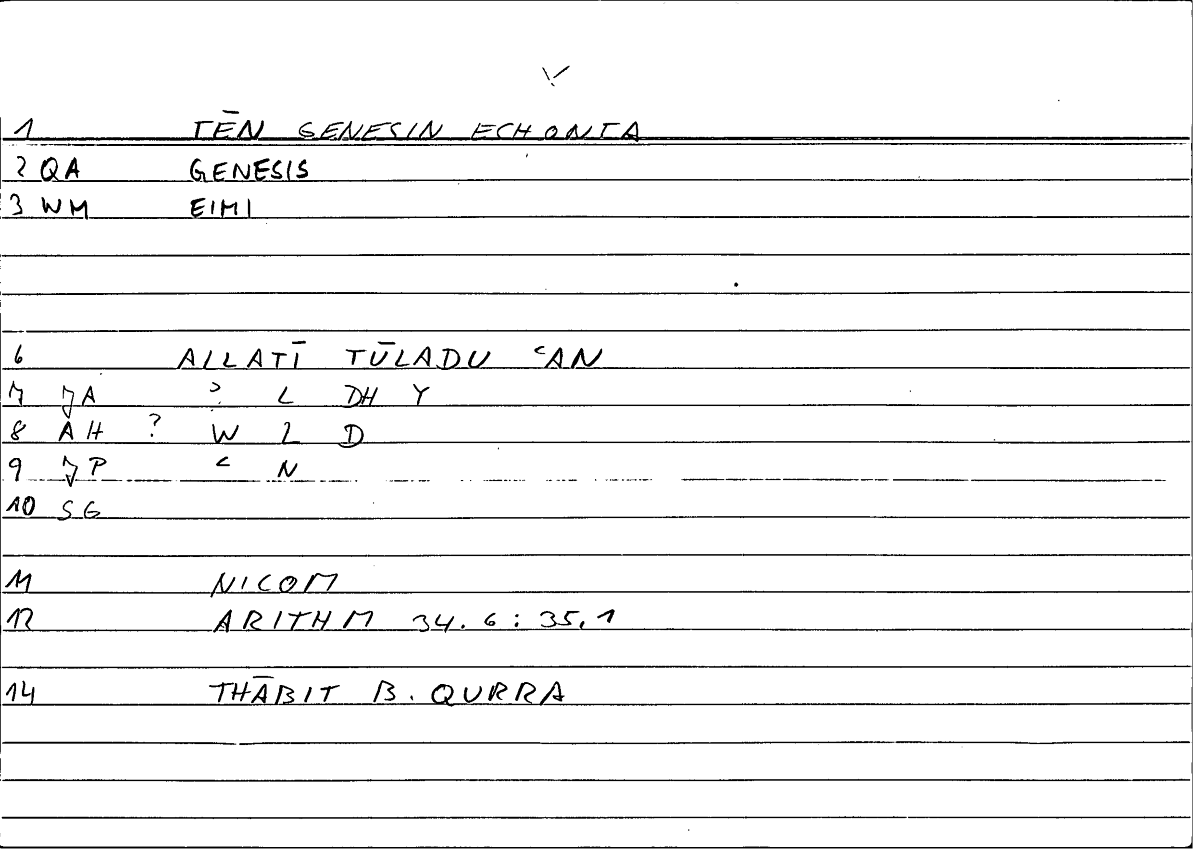 1 TĒN GENESIN ECHONTA
2 QA GENESIS
3 WM EIMI
6 ALLATĪ TŪLADU ʿAN
7 JA ʾ L DH Y
8 AH ? W L D
9 JP ʿ N
10 SG
11 NICOM
12 ARITHM 34.6:35,1
14 THĀBIT B. QURRA